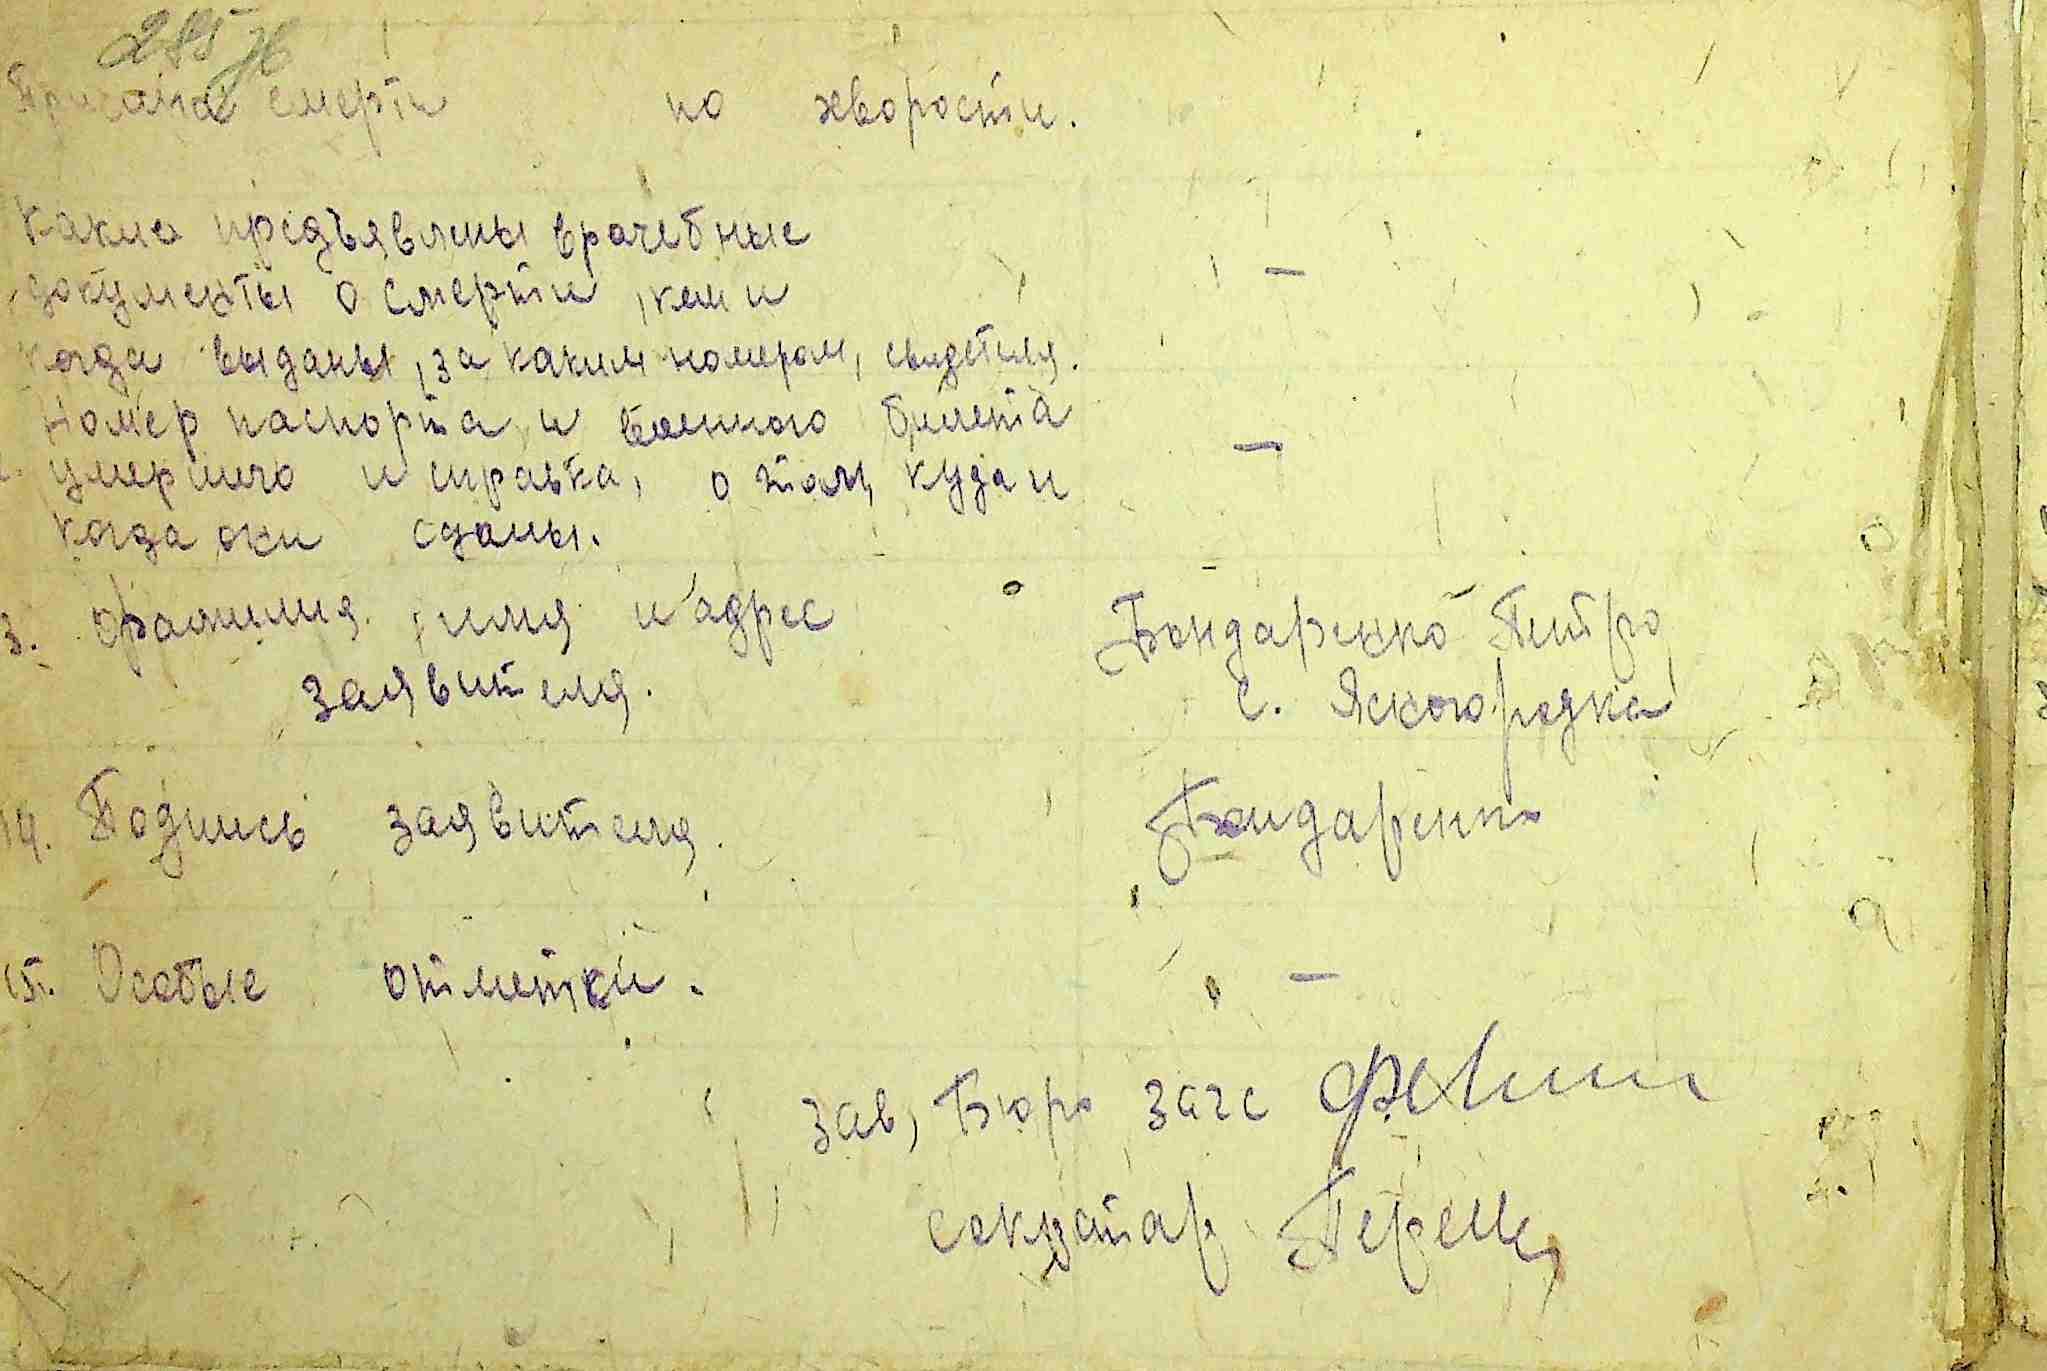 Причина смерти по хворости.
Какие предъявлены врачебные
документы о смерти, кем и
когда выданы, за каким номером, свидетеля.
Номер паспорта и военного билета
умершего и справка, о том, куда и
когда они сданы.
3. Фамилия, имя и адрес Бондаренко Петро
заявителя. с. Яскогородка
14. Подпись заявителя. Бондаренко
15. Особые отметки. –
зав, Бюро загс
секретар